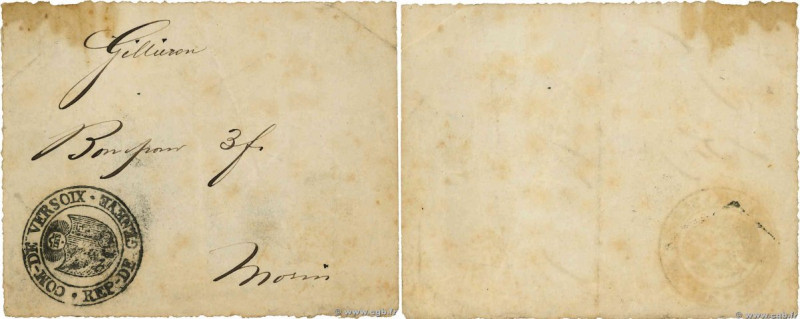 Gilliéron
Bon pour 3f.
Morin
COM-DE VERSOIX • REP-DE GENEVE •
© www.cgb.fr